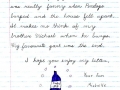 was really funny when Penelope
burped and the house fell apart.
It makes me think of my
brother Michael when he burps.
My favourite part was the end.
I hope you enjoy my letter,
Your fan